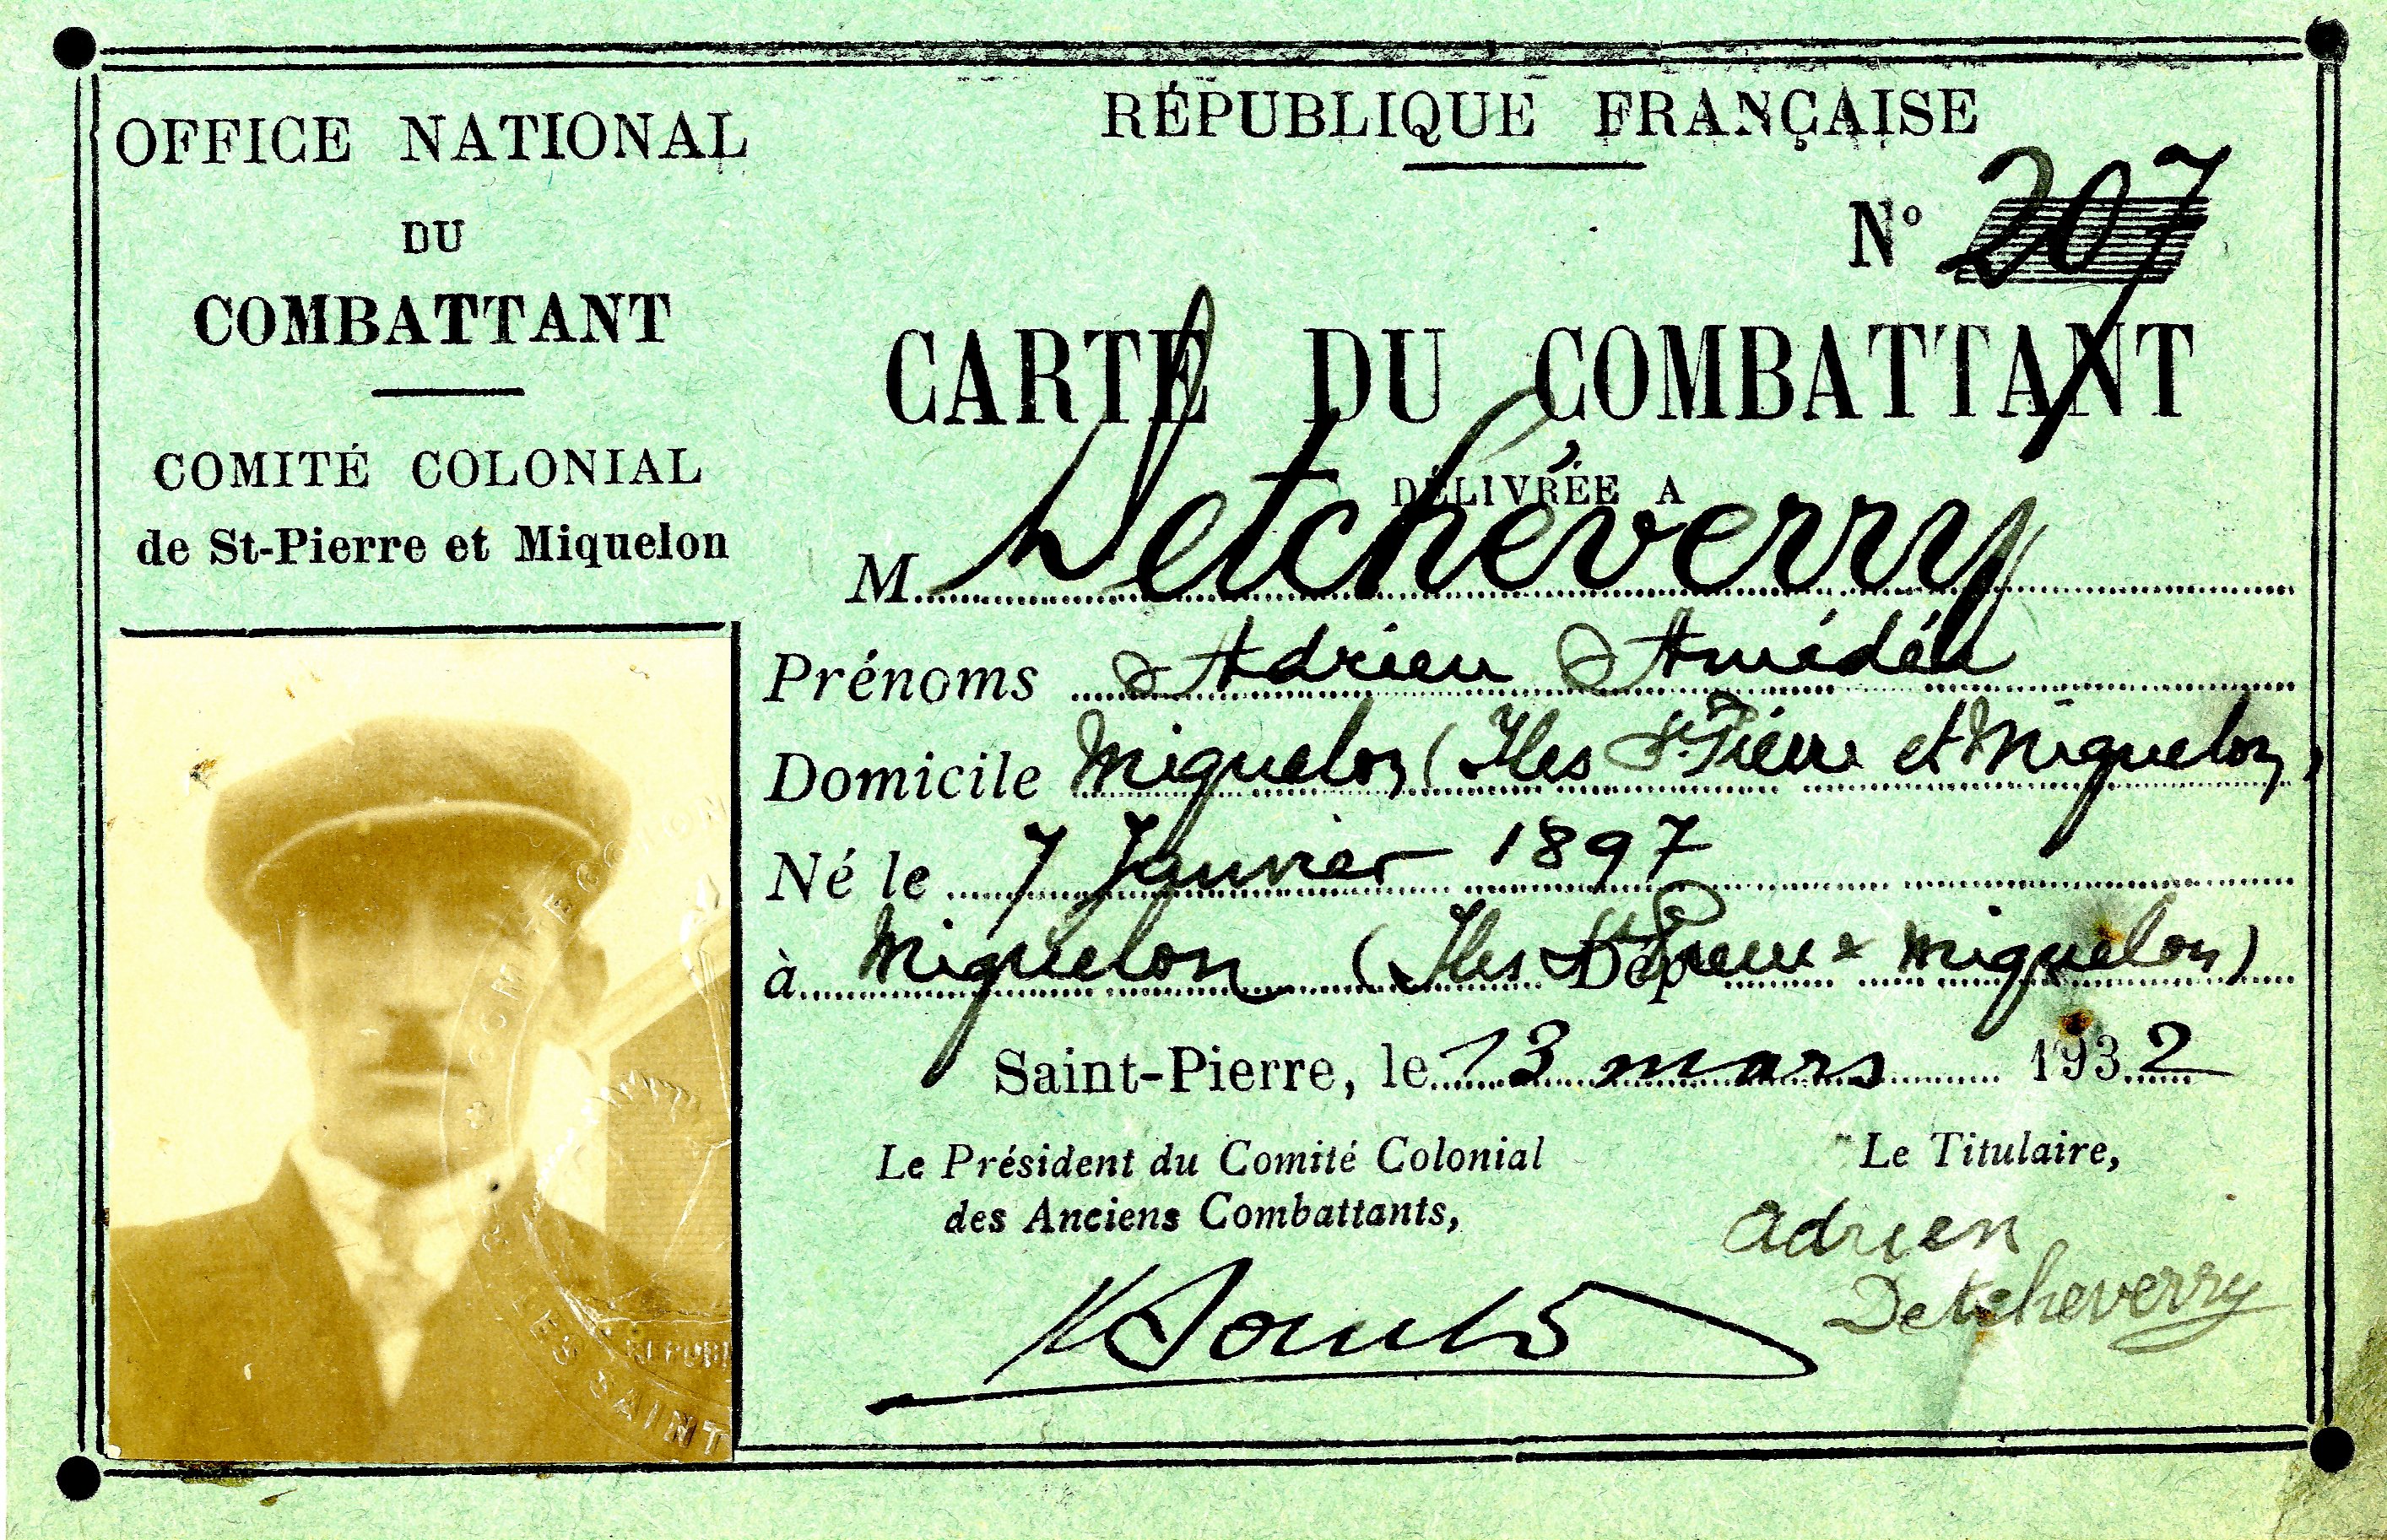 OFFICE NATIONAL
DU
COMBATTANT
COMITÉ COLONIAL
de St-Pierre et Miquelon
RÉPUBLIQUE FRANÇAISE
Nº 207
CARTE DU COMBATTANT
DÉLIVRÉE A
M. Detcheverry
Prénoms Adrien Amédée
Domicile Miquelon (Iles St Pierre et Miquelon)
Né le 7 Janvier 1897
à Miquelon (Iles St Pierre & Miquelon)
Dép
Saint-Pierre, le 13 mars 1932
Le Président du Comité Colonial
des Anciens Combattants,
Le Titulaire,
Adrien
Detcheverry
COMITE COLON
REPUBL
SAINT